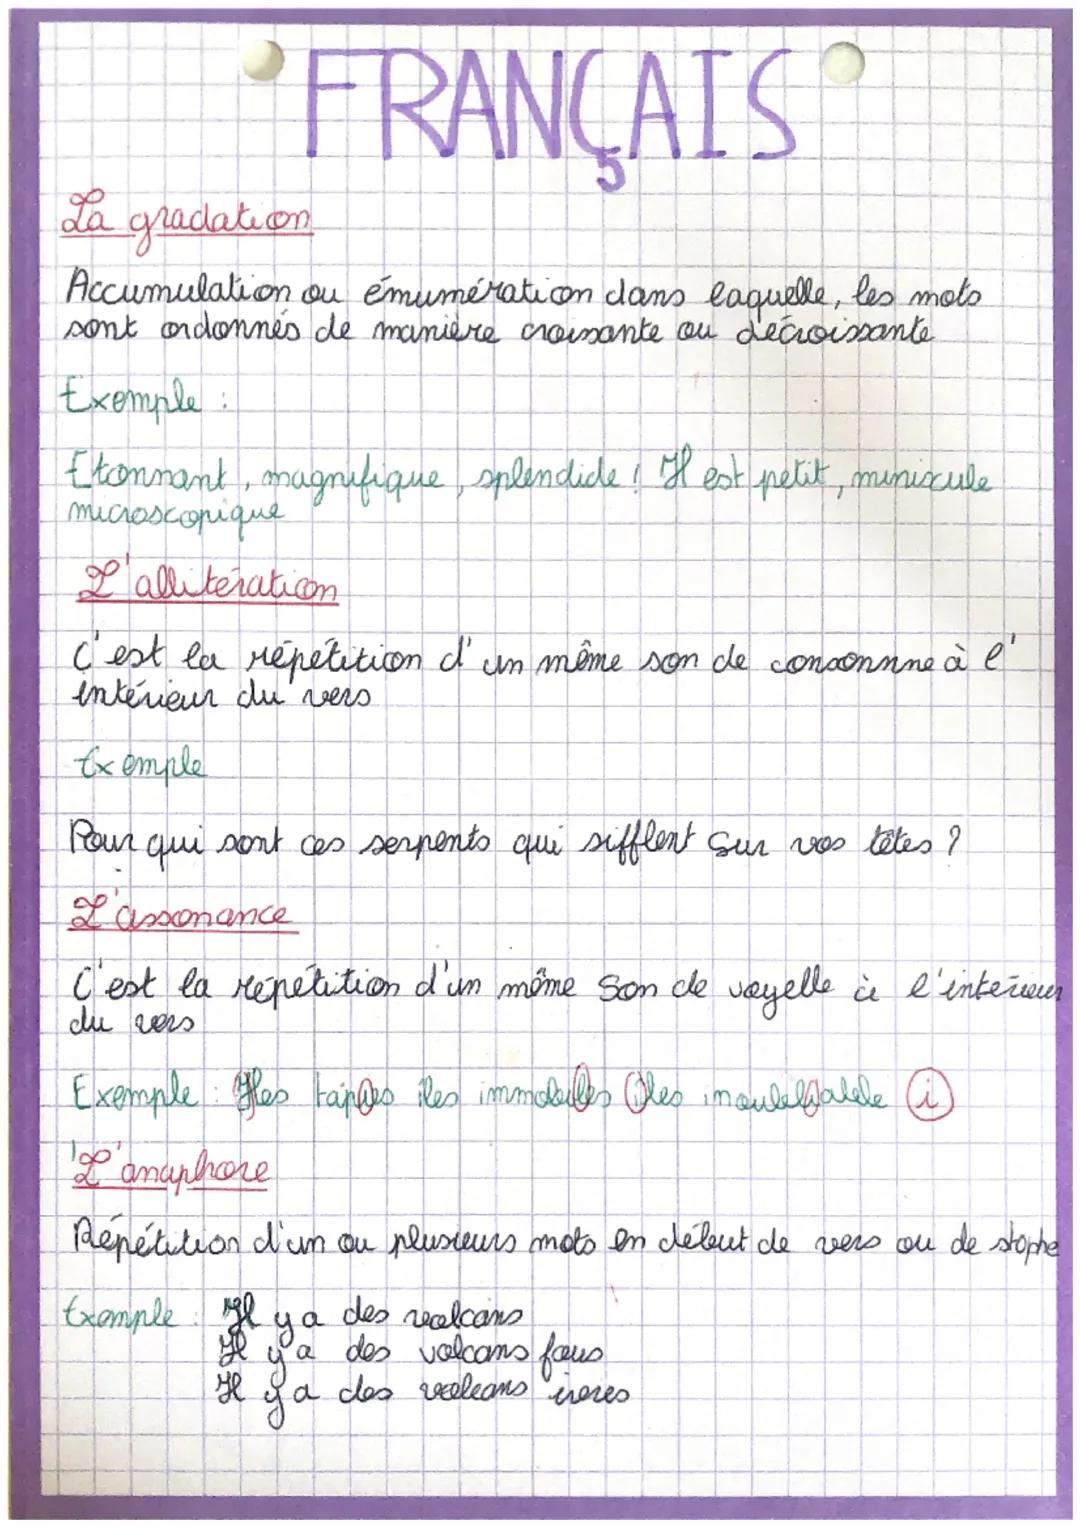 FRANÇAIS
La gradation
Accumulation ou énumération dans laquelle, les mots
sont ordonnés de manière croissante ou décroissante
Exemple :
Etonnant, magnifique, splendide ! Il est petit, miniscule
microscopique
L'allitération
C'est la répétition d'un même son de consonnne à l'
intérieur du vers
Exemple
Pour qui sont ces serpents qui sifflent sur vos têtes ?
L'assonance
C'est la répétition d'un même son de voyelle à l'intérieur
du vers
Exemple : Iles tapies îles immobiles îles inoubliable i
L'anaphore
Répétition d'un ou plusieurs mots en début de vers ou de stophe
Exemple : Il y a des volcans
Il y a des volcans fous
Il y a des volcans ivres